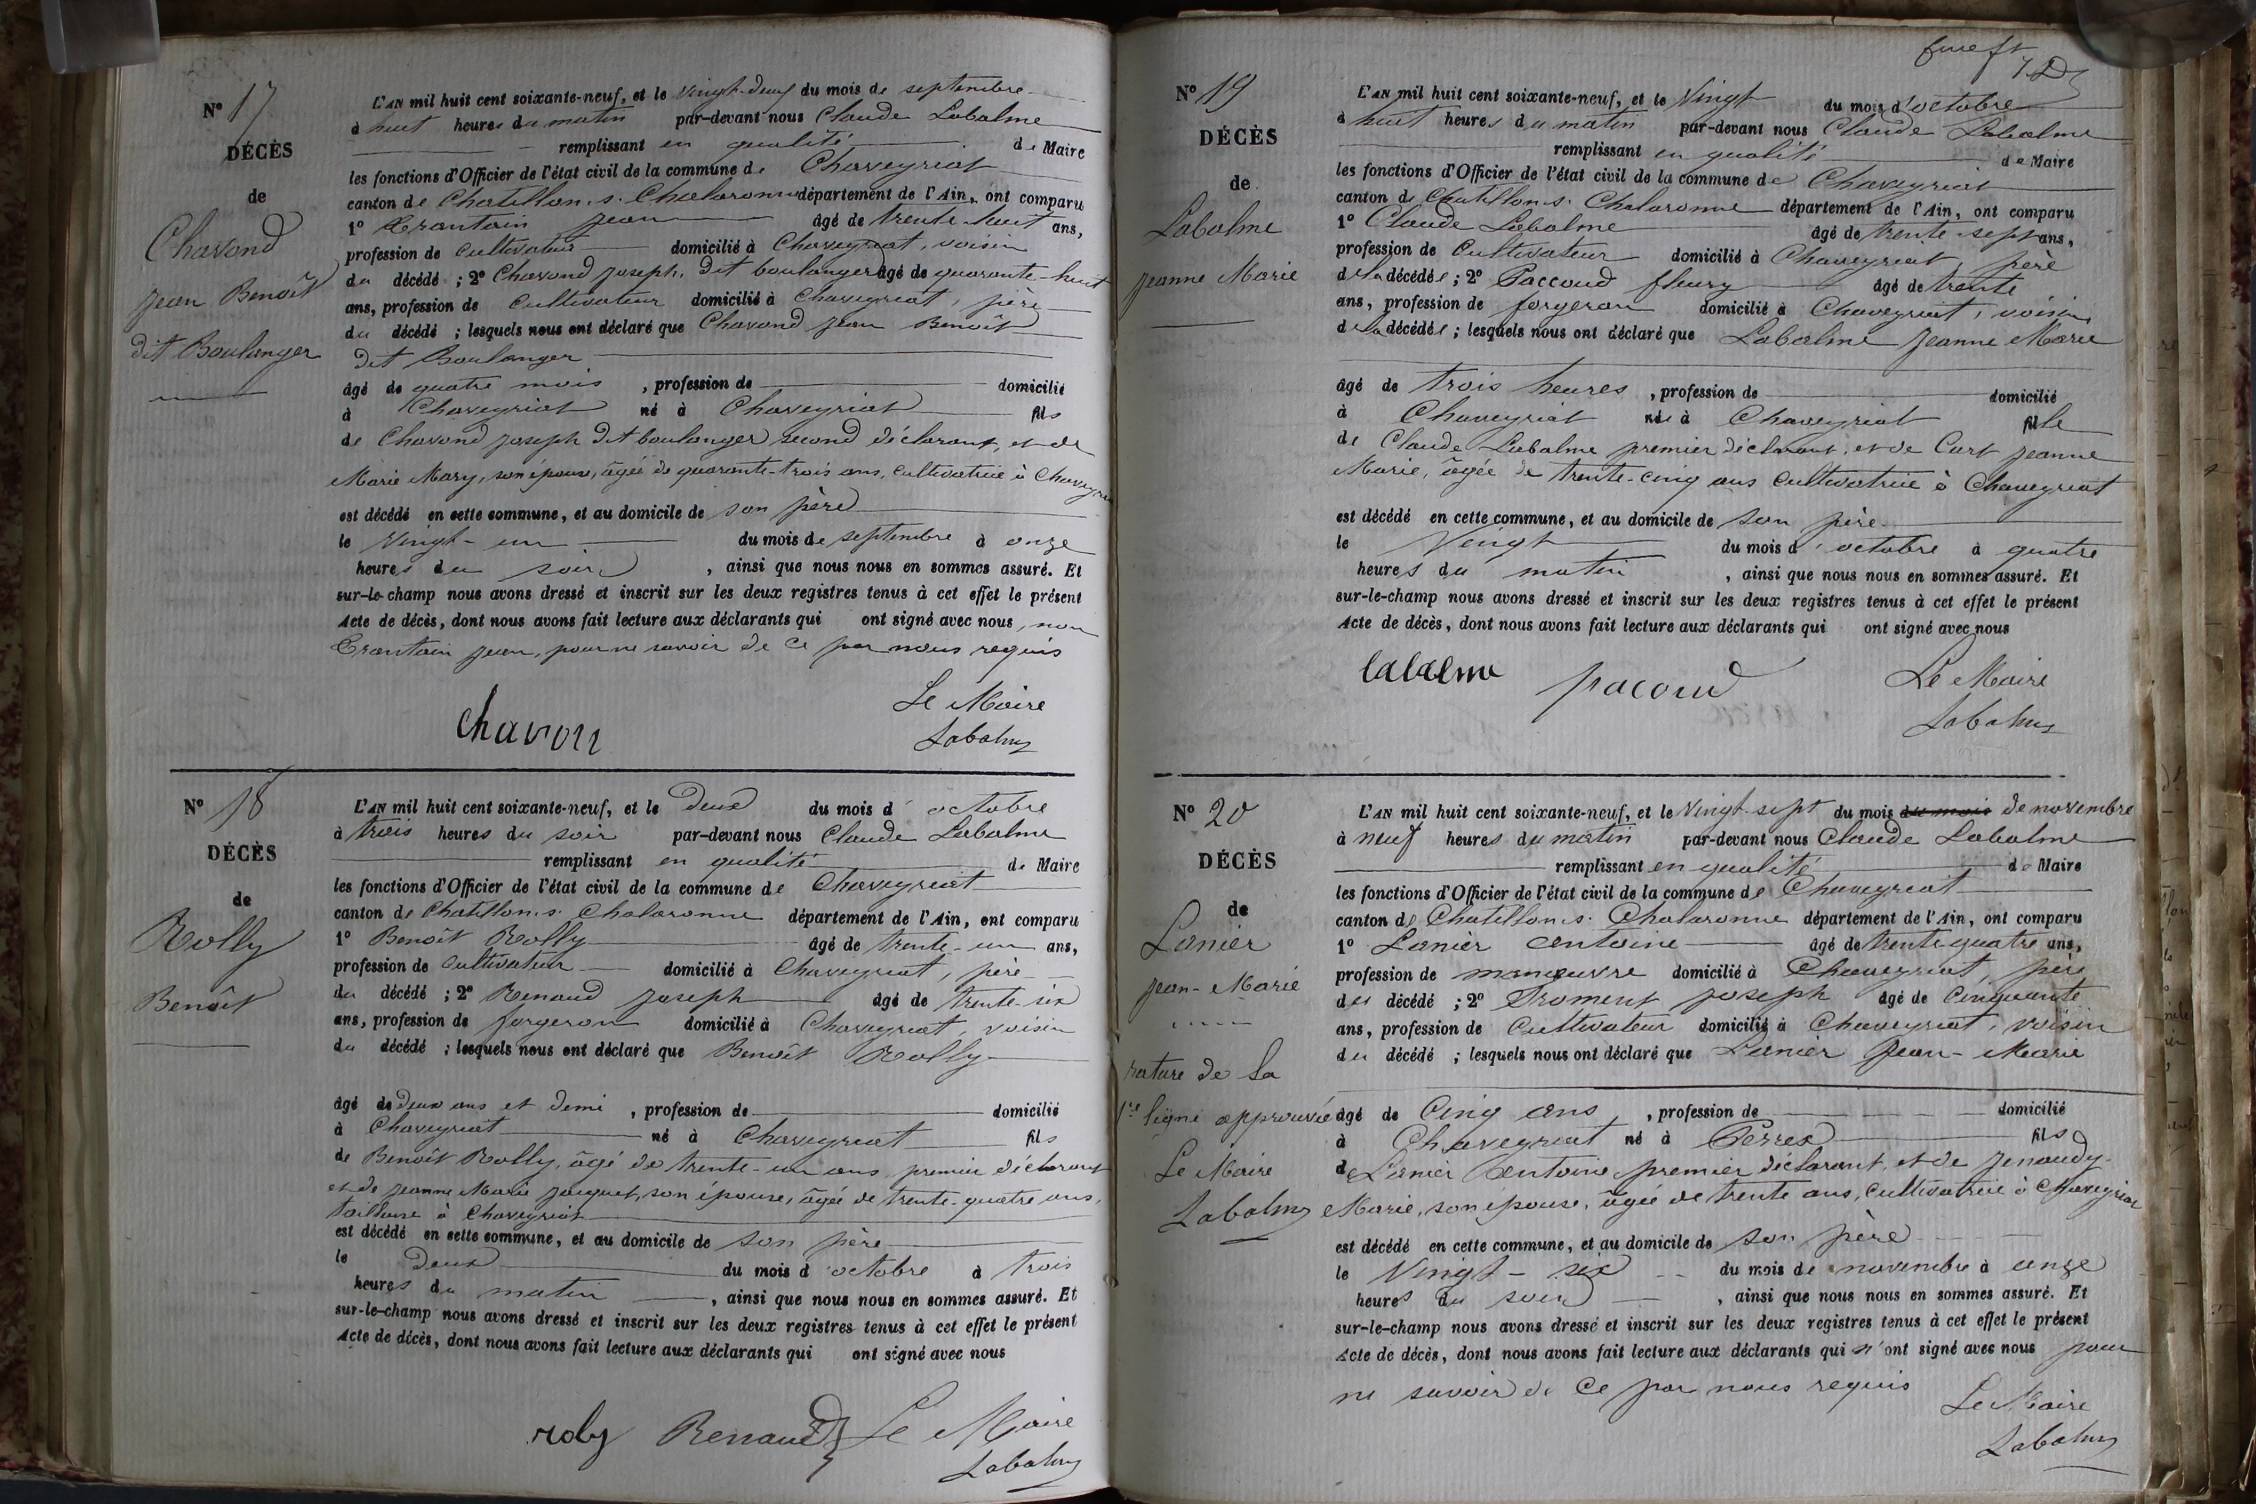 Nº 17
DÉCÈS
de
Chavand
Jean Benoît
dit Boulanger
L'AN mil huit cent soixante-neuf, et le vingt-deux du mois de septembre
à huit heures du matin par-devant nous Claude Labalme
remplissant en qualité de Maire
les fonctions d'Officier de l'état civil de la commune de Chaveyriat
canton de Chatillon s. Chalaronne département de l'Ain, ont comparu
1º Crantain Jean âgé de trente-huit ans,
profession de cultivateur domicilié à Chaveyriat, voisin
du décédé ; 2º Chavand Joseph, dit boulanger âgé de quarante-huit
ans, profession de cultivateur domicilié à Chaveyriat, père
du décédé ; lesquels nous ont déclaré que Chavand Jean Benoît
dit Boulanger
âgé de quatre mois , profession de domicilié
à Chaveyriat né à Chaveyriat fils
de Chavand Joseph dit boulanger second déclarant, et de
Marie Mary, son épouse, âgée de quarante-trois ans, cultivatrice à Chaveyriat
est décédé en cette commune, et au domicile de son père
le vingt-un du mois de septembre à onze
heures du soir , ainsi que nous nous en sommes assuré. Et
sur-le-champ nous avons dressé et inscrit sur les deux registres tenus à cet effet le présent
Acte de décès, dont nous avons fait lecture aux déclarants qui ont signé avec nous, non
Crantain Jean, pour ne savoir de ce par nous requis
Le Maire
chavon
Labalme
Nº 18
DÉCÈS
de
Rolly
Benoît
L'AN mil huit cent soixante-neuf, et le Deux du mois d' octobre
à trois heures du soir par-devant nous Claude Labalme
remplissant en qualité de Maire
les fonctions d'Officier de l'état civil de la commune de Chaveyriat
canton de Chatillon s. Chalaronne département de l'Ain, ont comparu
1º Benoît Rolly âgé de trente-un ans,
profession de cultivateur domicilié à Chaveyriat, père
du décédé ; 2º Renaud Joseph âgé de trente-six
ans, profession de forgeron domicilié à Chaveyriat, voisin
du décédé ; lesquels nous ont déclaré que Benoît Rolly
âgé de deux ans et demi , profession de domicilié
à Chaveyriat né à Chaveyriat fils
de Benoît Rolly, âgé de trente-un ans, premier déclarant
et de Jeanne Marie Jacquet, son épouse, âgée de trente-quatre ans,
tailleuse à Chaveyriat
est décédé en cette commune, et au domicile de son père
le Deux du mois d'octobre à trois
heures du matin , ainsi que nous nous en sommes assuré. Et
sur-le-champ nous avons dressé et inscrit sur les deux registres tenus à cet effet le présent
Acte de décès, dont nous avons fait lecture aux déclarants qui ont signé avec nous
roly Renaud Le Maire
Labalme
Nº 19
DÉCÈS
de
Labalme
Jeanne Marie
L'AN mil huit cent soixante-neuf, et le Vingt du mois d'octobre
à huit heures du matin par-devant nous Claude Labalme
remplissant en qualité de Maire
les fonctions d'Officier de l'état civil de la commune de Chaveyriat
canton de Chatillon s. Chalaronne département de l'Ain, ont comparu
1º Claude Labalme âgé de trente-sept ans,
profession de Cultivateur domicilié à Chaveyriat, père
de la décédée ; 2º Paccoud fleury âgé de trente
ans, profession de forgeron domicilié à Chaveyriat, voisin
de la décédée ; lesquels nous ont déclaré que Labalme Jeanne Marie
âgé de trois heures , profession de domicilié
à Chaveyriat née à Chaveyriat fille
de Claude Labalme premier déclarant, et de Curt Jeanne
Marie, âgée de trente-cinq ans cultivatrice à Chaveyriat
est décédé en cette commune, et au domicile de son père
le Vingt du mois d'octobre à quatre
heures du matin , ainsi que nous nous en sommes assuré. Et
sur-le-champ nous avons dressé et inscrit sur les deux registres tenus à cet effet le présent
Acte de décès, dont nous avons fait lecture aux déclarants qui ont signé avec nous
labalme pacoud Le Maire
Labalme
Nº 20
DÉCÈS
de
Lanier
Jean-Marie
rature de la
1re ligne approuvée
Le Maire
Labalme
L'AN mil huit cent soixante-neuf, et le Vingt-sept du mois du mois de novembre
à neuf heures du matin par-devant nous Claude Labalme
remplissant en qualité de Maire
les fonctions d'Officier de l'état civil de la commune de Chaveyriat
canton de Chatillon s. Chalaronne département de l'Ain, ont comparu
1º Lanier Antoine âgé de trente-quatre ans,
profession de manœuvre domicilié à Chaveyriat, père
du décédé ; 2º Froment Joseph âgé de Cinquante
ans, profession de Cultivateur domicilié à Chaveyriat, voisin
du décédé ; lesquels nous ont déclaré que Lanier Jean-Marie
âgé de Cinq ans , profession de domicilié
à Chaveyriat né à Perrex fils
de Lanier Antoine premier déclarant, et de Jenaudy
Marie, son épouse, âgée de trente ans, Cultivatrice à Chaveyriat
est décédé en cette commune, et au domicile de son père
le Vingt-six du mois de novembre à onze
heures du soir , ainsi que nous nous en sommes assuré. Et
sur-le-champ nous avons dressé et inscrit sur les deux registres tenus à cet effet le présent
Acte de décès, dont nous avons fait lecture aux déclarants qui n'ont signé avec nous pour
ne savoir de ce par nous requis
Le Maire
Labalme